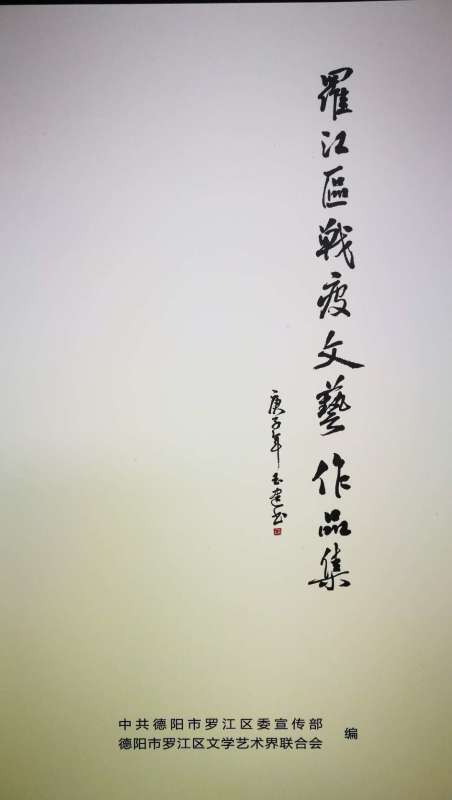 羅江區戰疫文藝作品集
庚子年玉建书
中共德阳市罗江区委宣传部
德阳市罗江区文学艺术界联合会
编